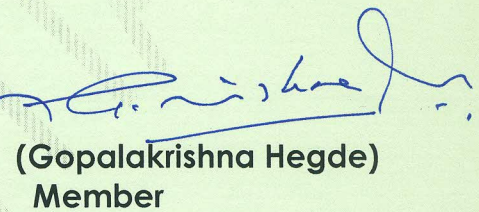 (Gopalakrishna Hegde)
Member